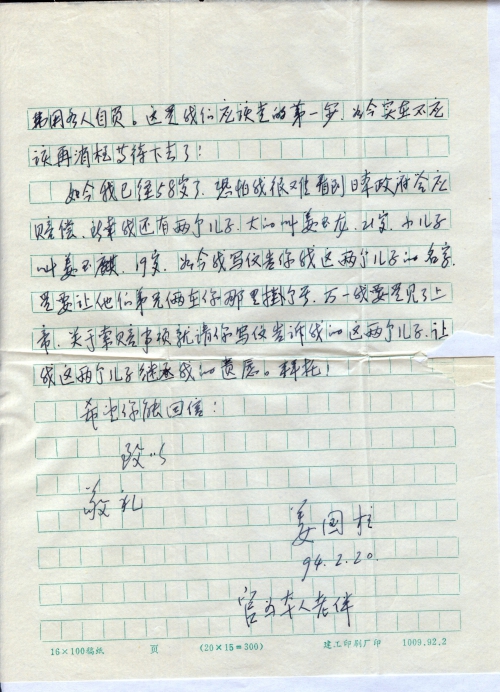 费用各人自负。这是我们应该走的第一步，如今实在不应
该再消极等待下去了！
如今我已经58岁了，恐怕我很难看到日本政府答应
赔偿，好在我还有两个儿子，大的叫姜玉龙，21岁，小儿子
叫姜玉麒，19岁，如今我写信告诉你我这两个儿子的名字，
是要让他们弟兄俩在你那里挂个号，万一我要是见了上
帝，关于索赔事项就请你写信告诉我的这两个儿子，让
我这两个儿子继承我的遗愿。拜托！
希望你能回信！
致以
敬礼
姜国柱
94.2.20.
本人老伴
16×100稿纸 页 (20×15=300) 建工印刷厂印 1009.92.2